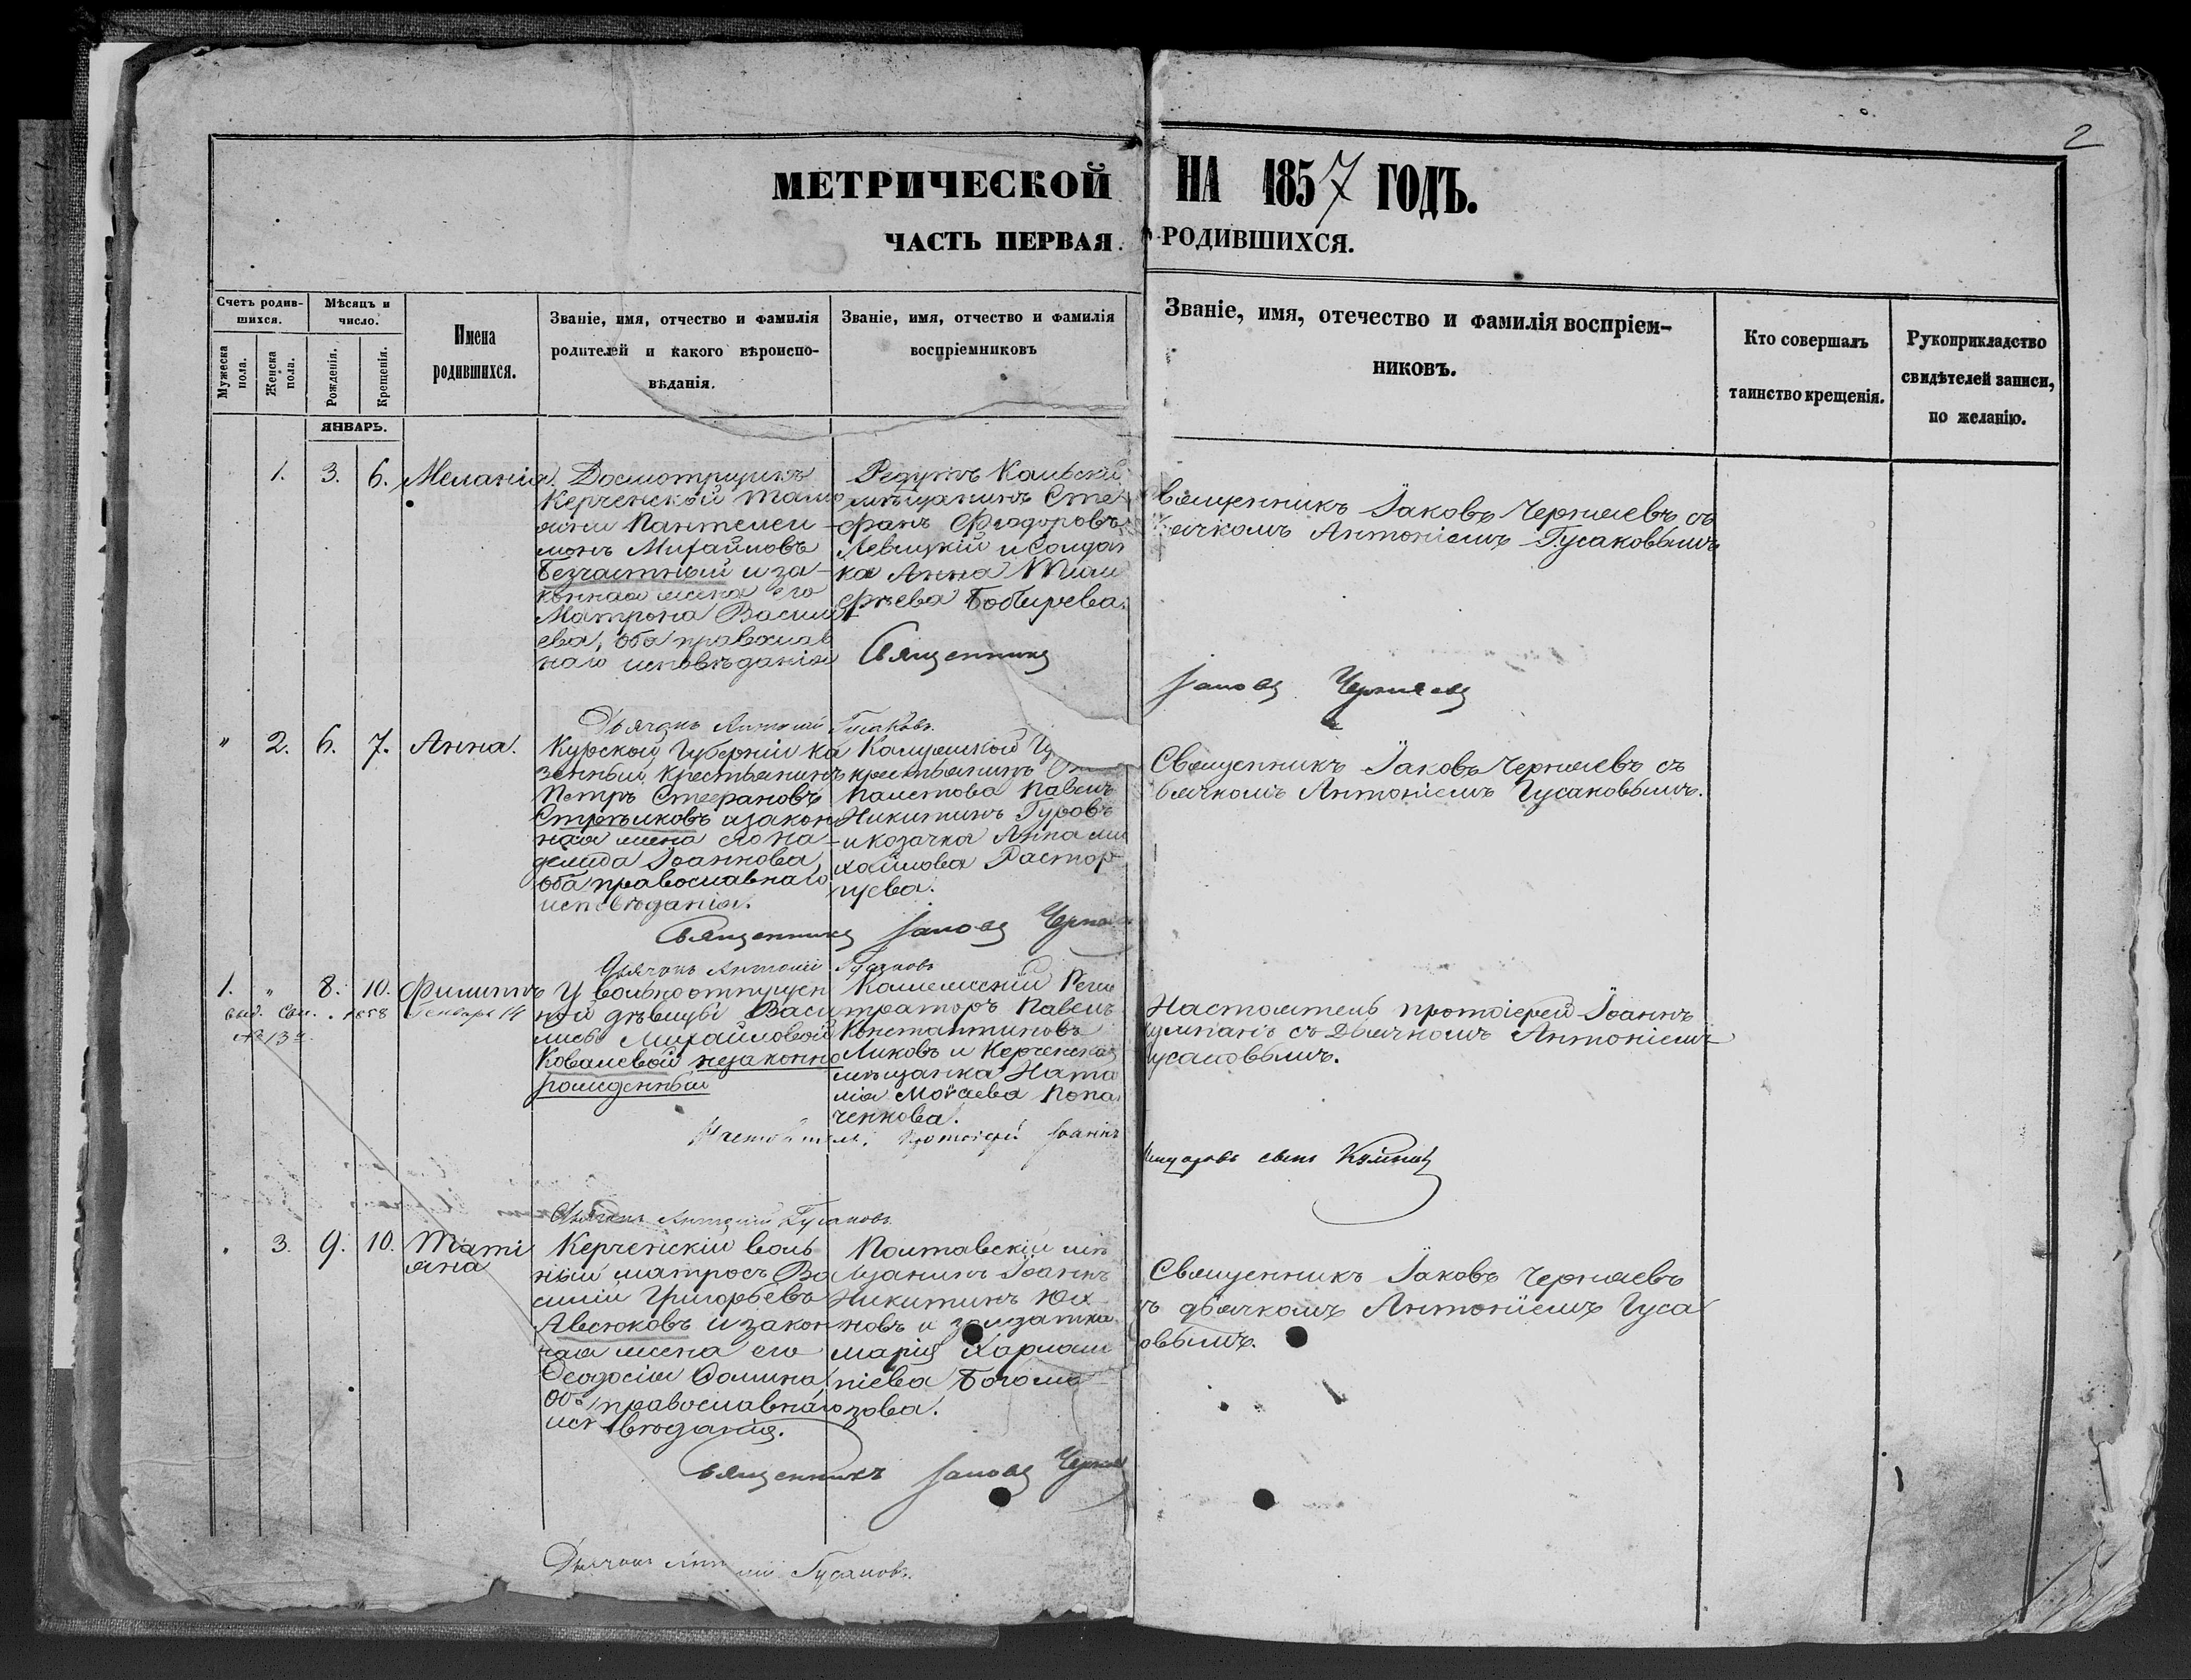 2
МЕТРИЧЕСКОЙ НА 1857 ГОДЪ.
ЧАСТЬ ПЕРВАЯ. РОДИВШИХСЯ.
Счетъ родив-
шихся.
Мужеска
пола.
Женска
пола.
Мѣсяцъ и
число.
Рожденія.
Крещенія.
Имена
родившихся.
Званіе, имя, отчество и фамилія
родителей и какого вѣроиспо-
вѣданія.
Званіе, имя, отчество и фамилія
воспріемниковъ
Званіе, имя, отечество и фамилія воспріем-
никовъ.
Кто совершалъ
таинство крещенія.
Рукоприкладство
свидѣтелей записи,
по желанію.
ЯНВАРЬ.
1. 3. 6. Меланія.
Досмотрщикъ
Керченской тамо
жни Пантелеи-
монъ Михайловъ
Безчастный и за-
конная жена его
Матрона Василь
ева, оба православ
наго исповѣданія
Редутъ Кальскій
мѣщанинъ Сте
фанъ Феодоровъ
Левицкій и Солдат
ка Анна Тимо
фѣева Бобырева.
Священникъ
Священникъ Іаковъ Черняевъ съ
дьячкомъ Антоніемъ Гусаковымъ
Іаковъ Черняевъ
Дьячокъ Антоній Гусаковъ
" 2. 6. 7. Анна.
Курской Губерніи ка
зенный крестьянинъ
Петръ Стефановъ
Стрѣлковъ и закон
ная жена его На-
дежда Іоаннова,
оба православнаго
исповѣданія.
крестьянинъ
Павелъ
Никитинъ Гуровъ
и козачка Анна Ми
хайлова Растор-
гуева.
Священникъ Іаковъ Черняевъ
Священникъ Іаковъ Черняевъ съ
дьячкомъ Антоніемъ Гусаковымъ.
Дьячокъ Антоній Гусаковъ
1. " 8. 10. Филиппъ
1858 Января 14
№ 13
У вольноотпущен
ной дѣвицы Васи
лисы Михайловой
Ковалевой незаконно
рожденный
Коллежскій Реги
траторъ Павелъ
Константиновъ
Ликовъ и Керченская
мѣщанка Ната
лія Моѵсеева Копа
ченкова.
Настоятель, протоіерей Іоаннъ
Настоятель протоіерей Іоаннъ
Кумпанъ съ Дьячкомъ Антоніемъ
Гусаковымъ.
Дьячокъ Антоній Гусаковъ
" 3. 9. 10. Таті
яна
Керченскій воль
ный матросъ Ва
силій Григорьевъ
Авсюковъ и закон
ная жена его
Ѳеодосія Ѳомина
оба православнаго
исповѣданія.
Полтавскій мѣ
щанинъ Іоаннъ
Никитинъ Юх
новъ и солдатка
Марія Харлам
піева Богома
зова.
Священникъ Іаковъ Черняевъ
Священникъ Іаковъ Черняевъ
съ дьячкомъ Антоніемъ Гуса
овымъ.
Дьячокъ Антоній Гусаковъ.